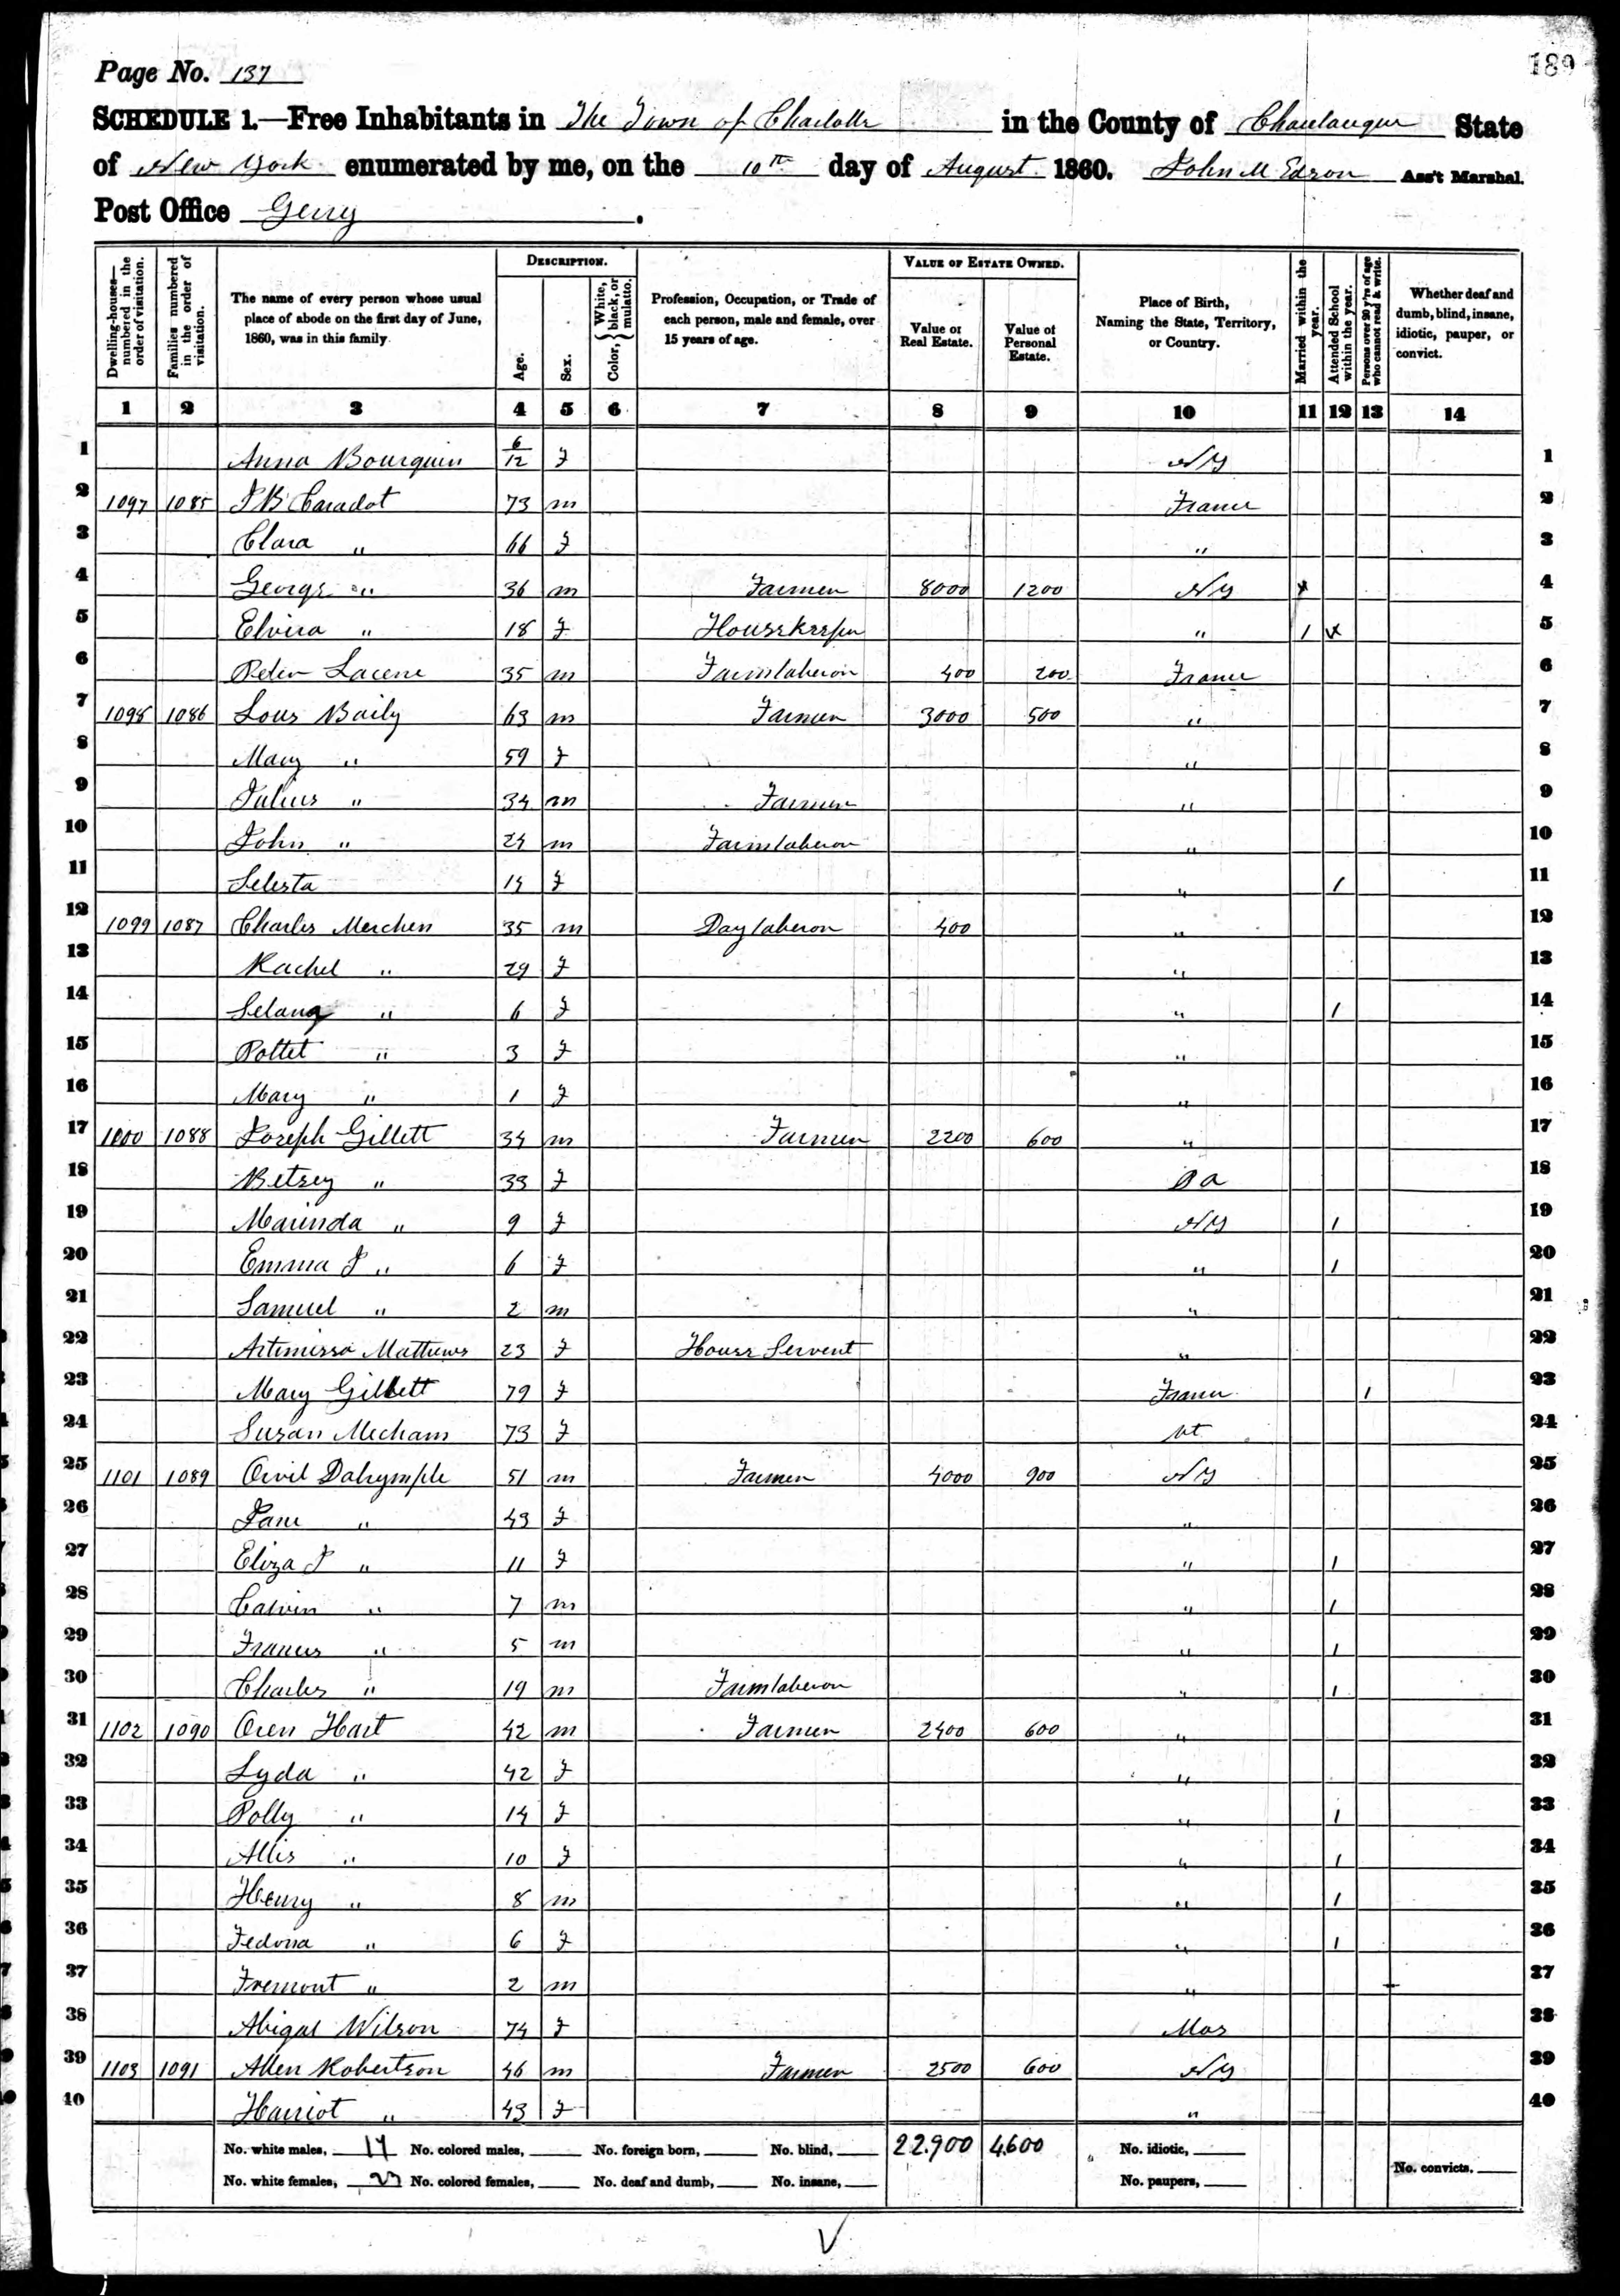 189
Page No. 137
SCHEDULE 1.—Free Inhabitants in The Town of Charlotte in the County of Chautauqua State
of New York enumerated by me, on the 10th day of August 1860. John M Edson Ass't Marshal.
Post Office Gerry.
Dwelling-houses—numbered in the order of visitation. Families numbered in the order of visitation. The name of every person whose usual place of abode on the first day of June, 1860, was in this family. DESCRIPTION. Age. Sex. Color, { White, black, or mulatto. Profession, Occupation, or Trade of each person, male and female, over 15 years of age. VALUE OF ESTATE OWNED. Value of Real Estate. Value of Personal Estate. Place of Birth, Naming the State, Territory, or Country. Married within the year. Attended School within the year. Persons over 20 y'rs of age who cannot read & write. Whether deaf and dumb, blind, insane, idiotic, pauper, or convict.
1 2 3 4 5 6 7 8 9 10 11 12 13 14
1 Anna Bourquin 6/12 F NY 1
2 1097 1085 J B Caradot 73 m France 2
3 Clara " 66 F " 3
4 George " 36 m Farmer 8000 1200 NY x 4
5 Elvira " 18 F Housekeeper " 1 x 5
6 Peter Lacene 35 m Farmlaberor 400 200 France 6
7 1098 1086 Lous Baily 63 m Farmer 3000 500 " 7
8 Mary " 59 F " 8
9 Julius " 34 m Farmer " 9
10 John " 24 m Farmlaberor " 10
11 Selesta 14 F " 1 11
12 1099 1087 Charles Merchen 35 m Daylaberor 400 " 12
13 Rachel " 29 F " 13
14 Selana " 6 F " 1 14
15 Pottet " 3 F " 15
16 Mary " 1 F " 16
17 1100 1088 Joseph Gillett 34 m Farmer 2200 600 " 17
18 Betsey " 33 F Pa 18
19 Marinda " 9 F NY 1 19
20 Emma J " 6 F " 1 20
21 Samuel " 2 m " 21
22 Artimissa Matthews 23 F House Servent " 22
23 Mary Gillett 79 F France 1 23
24 Susan Mecham 73 F Vt 24
25 1101 1089 Orvil Dalrymple 51 m Farmer 4000 900 NY 25
26 Jane " 43 F " 26
27 Eliza J " 11 F " 1 27
28 Calvin " 7 m " 1 28
29 Francis " 5 m " 1 29
30 Charles " 19 m Farmlaberor " 1 30
31 1102 1090 Oren Hart 42 m Farmer 2400 600 " 31
32 Lyda " 42 F " 32
33 Polly " 14 F " 1 33
34 Allis " 10 F " 1 34
35 Henry " 8 m " 1 35
36 Fedona " 6 F " 1 36
37 Fremont " 2 m " 37
38 Abigal Wilson 74 F Mas 38
39 1103 1091 Allen Robertson 46 m Farmer 2500 600 NY 39
40 Harriot " 43 F " 40
No. white males, 17 No. colored males, No. foreign born, No. blind, 22.900 4.600 No. idiotic,
No. white females, 23 No. colored females, No. deaf and dumb, No. insane, No. paupers, No. convicts,